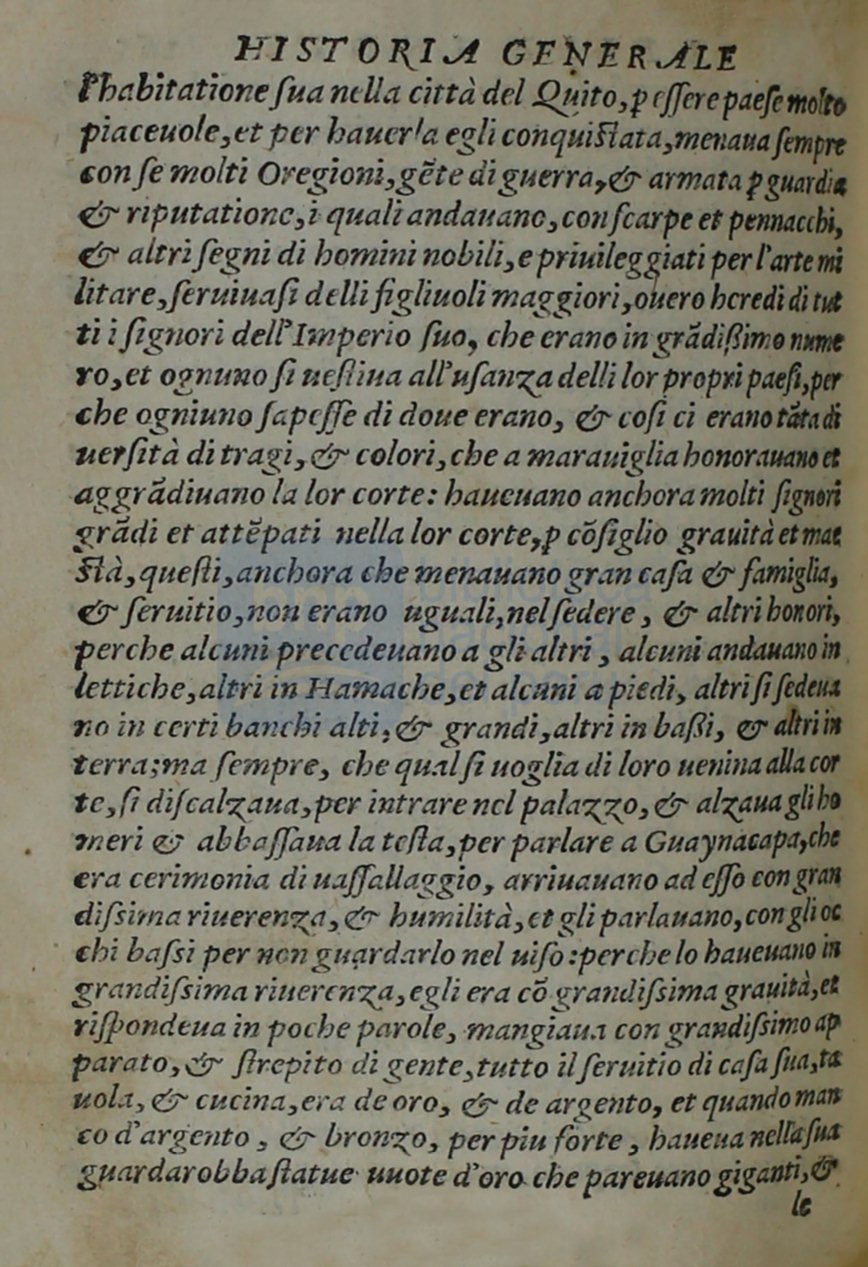 HISTORIA GENERALE
l'habitatione ſua nella città del Quito, p eſſere paeſe molto
piaceuole, et per hauerla egli conquiſtata, menaua ſempre
con ſe molti Oregioni, gẽte di guerra, & armata p guardia
& riputatione, i quali andauano, con ſcarpe et pennacchi,
& altri ſegni di homini nobili, e priuileggiati per l'arte mi
litare, ſeruiuaſi delli figliuoli maggiori, ouero heredi di tut
ti i ſignori dell'Imperio ſuo, che erano in grãdiſſimo nume
ro, et ognuno ſi ueſtiua all'uſanza delli lor propri paeſi, per
che ogniuno ſapeſſe di doue erano, & coſi ci erano tãta di
uerſità di tragi, & colori, che a marauiglia honorauano et
aggrãdiuano la lor corte: haueuano anchora molti ſignori
grãdi et attẽpati nella lor corte, p cõſiglio grauità et mae
ſtà, queſti, anchora che menauano gran caſa & famiglia,
& ſeruitio, non erano uguali, nel ſedere, & altri honori,
perche alcuni precedeuano a gli altri, alcuni andauano in
lettiche, altri in Hamache, et alcuni a piedi, altri ſi ſedeua
no in certi banchi alti, & grandi, altri in baſſi, & altri in
terra; ma ſempre, che qual ſi uoglia di loro ueniua alla cor
te, ſi diſcalzaua, per intrare nel palazzo, & alzaua gli ho
meri & abbaſſaua la teſta, per parlare a Guaynacapa, che
era cerimonia di uaſſallaggio, arriuauano ad eſſo con gran
diſsima riuerenza, & humilità, et gli parlauano, con gli oc
chi baſsi per non guardarlo nel uiſo: perche lo haueuano in
grandiſsima riuerenza, egli era cõ grandiſsima grauità, et
riſpondeua in poche parole, mangiaua con grandiſsimo ap
parato, & ſtrepito di gente, tutto il ſeruitio di caſa ſua, ta
uola, & cucina, era de oro, & de argento, et quando man
co d'argento, & bronzo, per piu forte, haueua nella ſua
guardarobba ſtatue uuote d'oro che pareuano giganti, &
le